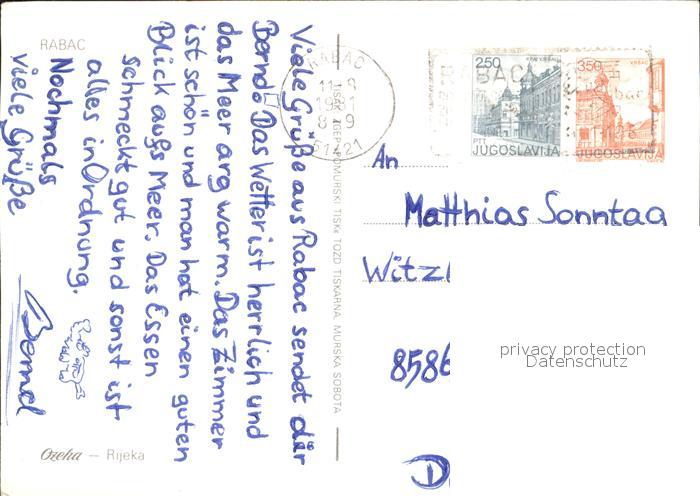 RABAC
Viele Grüße aus Rabac sendet dir
Bernd. Das Wetter ist herrlich und
das Meer arg warm. Das Zimmer
ist schön und man hat einen guten
Blick aufs Meer. Das Essen
schmeckt gut und sonst ist
alles in Ordnung.
Nochmals
viele Grüße
Bernd
Ozeha — Rijeka
POMURSKI TISK TOZD TISKARNA, MURSKA SOBOTA
RABAC
1981
51421
RABAC
2,50
PTT JUGOSLAVIJA
3,50
JUGOSLAVIJA
An
Matthias Sonntag
Witzl
8586
D
privacy protection
Datenschutz